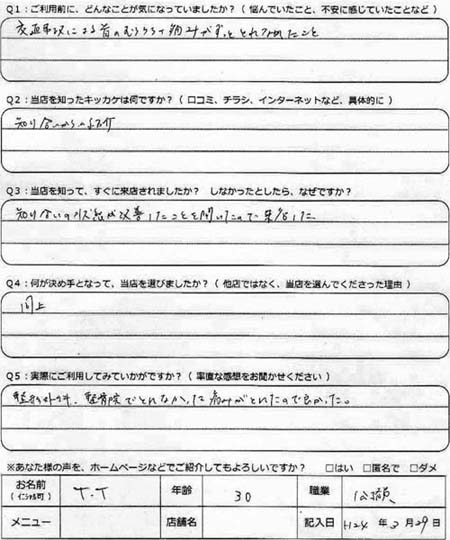 Q1：ご利用前に、どんなことが気になっていましたか？（悩んでいたこと、不安に感じていたことなど）
交通事故による首のむちうちで痛みがずっととれなかったこと
Q2：当店を知ったキッカケは何ですか？（口コミ、チラシ、インターネットなど、具体的に）
知り合いからの紹介
Q3：当店を知って、すぐに来店されましたか？ しなかったとしたら、なぜですか？
知り合いの状態が改善したことを聞いたので来店した
Q4：何が決め手となって、当店を選びましたか？（他店ではなく、当店を選んでくださった理由）
同上
Q5：実際にご利用してみていかがですか？（率直な感想をお聞かせください）
整形外科、整骨院でとれなかった痛みがとれたので良かった。
※あなた様の声を、ホームページなどでご紹介してもよろしいですか？ □はい □匿名で □ダメ
お名前 （イニシャル可） T.T 年齢 30 職業 公務員
メニュー 店舗名 記入日 H24 年 3 月 29 日